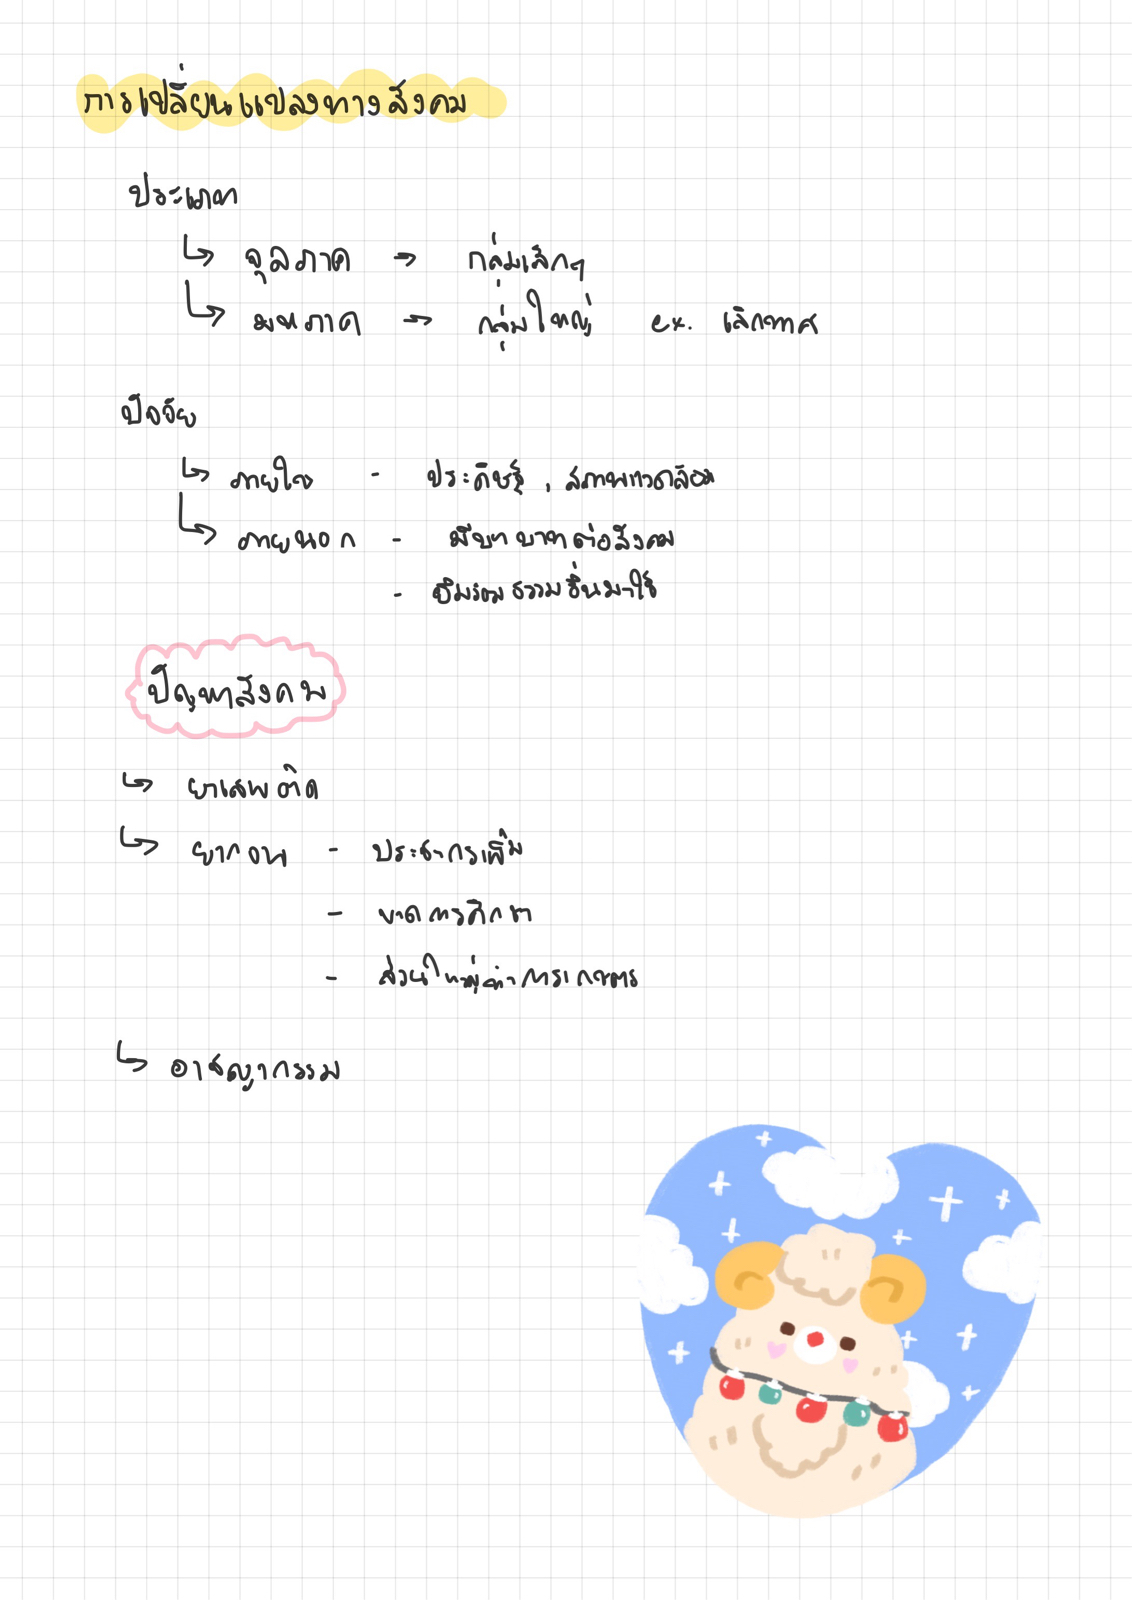 การเปลี่ยนแปลงทางสังคม
ประเภท
↳ จุลภาค → กลุ่มเล็กๆ
↳ มหภาค → กลุ่มใหญ่ ex. เลิกทาส
ปัจจัย
↳ ภายใน - ประดิษฐ์, สภาพแวดล้อม
↳ ภายนอก - มีบทบาทต่อสังคม
- ยืมวัฒนธรรมอื่นมาใช้
ปัญหาสังคม
↳ ยาเสพติด
↳ ยากจน - ประชากรเพิ่ม
- ขาดการศึกษา
- ส่วนใหญ่ทำการเกษตร
↳ อาชญากรรม